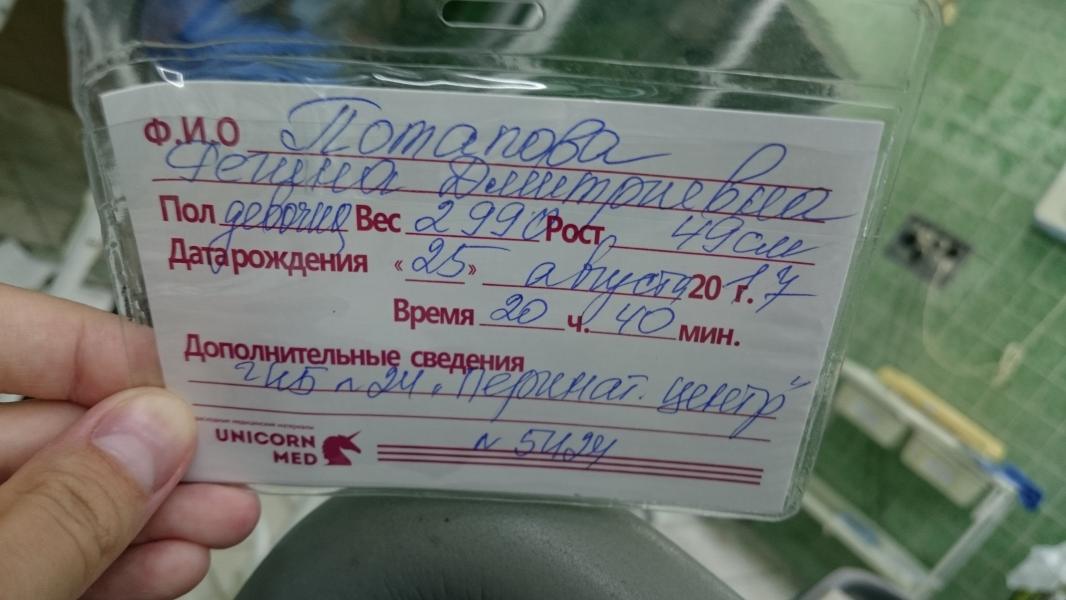 Ф.И.О Потапова
Дмитриевна
Пол девочка Вес 2990 Рост 49см
Дата рождения «25» августа 20 г. 17
Время 20 ч. 40 мин.
Дополнительные сведения
ГКБ № 24 "Перинат. центр"
UNICORN
MED
№ 5424